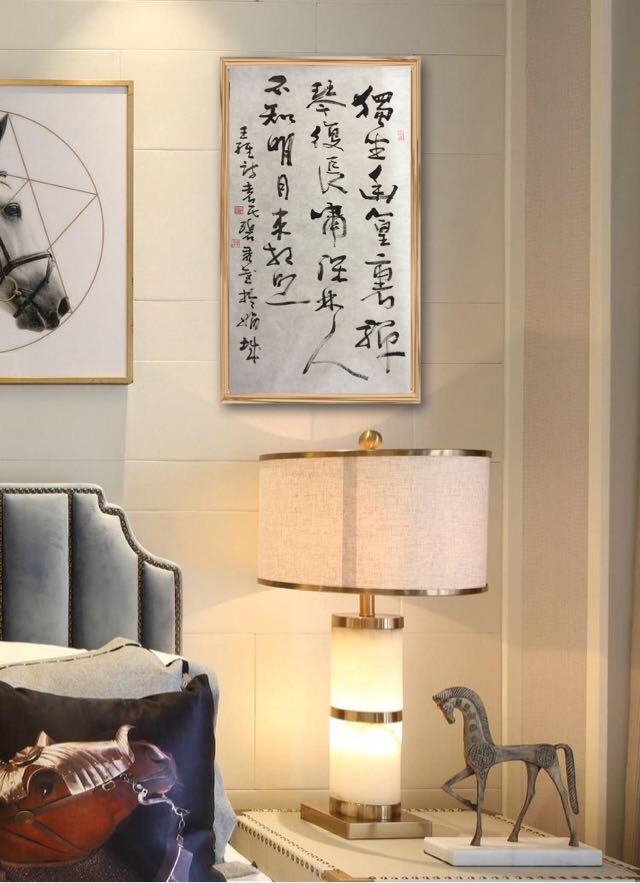 獨坐幽篁裏彈
琴復長嘯深林人
不知明月来相照
王維詩